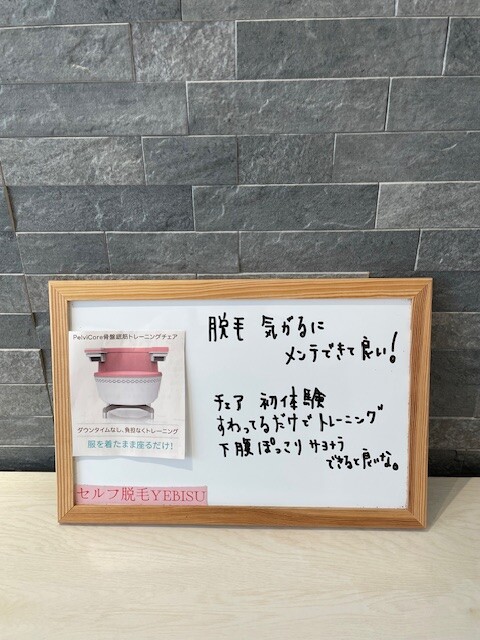 脱毛 気がるに
メンテできて良い!
チェア 初体験
すわってるだけでトレーニング
下腹ぽっこりサヨナラ
できると良いな。
PelviCore骨盤底筋トレーニングチェア
ダウンタイムなし、負担なくトレーニング
服を着たまま座るだけ!
セルフ脱毛YEBISU